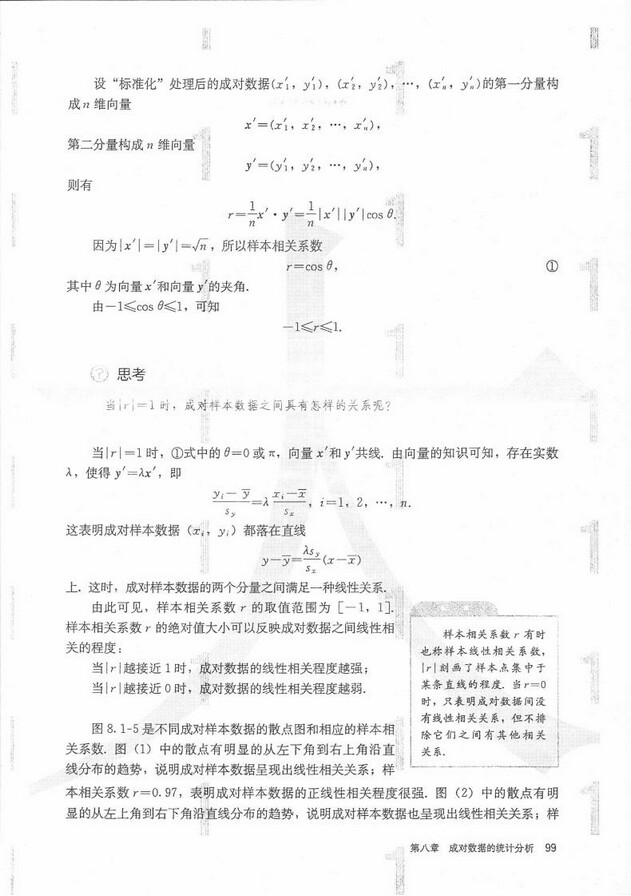 设“标准化”处理后的成对数据(x′₁, y′₁), (x′₂, y′₂), …, (x′ₙ, y′ₙ)的第一分量构
成 n 维向量
x′=(x′₁, x′₂, …, x′ₙ),
第二分量构成 n 维向量
y′=(y′₁, y′₂, …, y′ₙ),
则有
r=\frac{1}{n}x′·y′=\frac{1}{n}|x′||y′|cos θ.
因为|x′|=|y′|=√n, 所以样本相关系数
r=cos θ, ①
其中 θ 为向量 x′和向量 y′的夹角.
由−1≤cos θ≤1, 可知
−1≤r≤1.
? 思考
当|r|=1 时, 成对样本数据之间具有怎样的关系呢?
当|r|=1 时, ①式中的 θ=0 或 π, 向量 x′和 y′共线. 由向量的知识可知, 存在实数
λ, 使得 y′=λx′, 即
\frac{yᵢ−\overline{y}}{s_y}=λ\frac{xᵢ−\overline{x}}{s_x}, i=1, 2, …, n.
这表明成对样本数据 (xᵢ, yᵢ) 都落在直线
y−\overline{y}=\frac{λs_y}{s_x}(x−\overline{x})
上. 这时, 成对样本数据的两个分量之间满足一种线性关系.
由此可见, 样本相关系数 r 的取值范围为 [−1, 1].
样本相关系数 r 的绝对值大小可以反映成对数据之间线性相
关的程度:
当|r|越接近 1 时, 成对数据的线性相关程度越强;
当|r|越接近 0 时, 成对数据的线性相关程度越弱.
样本相关系数 r 有时
也称样本线性相关系数,
|r|刻画了样本点集中于
某条直线的程度. 当 r=0
时, 只表明成对数据间没
有线性相关关系, 但不排
除它们之间有其他相关
关系.
图 8.1-5 是不同成对样本数据的散点图和相应的样本相
关系数. 图 (1) 中的散点有明显的从左下角到右上角沿直
线分布的趋势, 说明成对样本数据呈现出线性相关关系; 样
本相关系数 r=0.97, 表明成对样本数据的正线性相关程度很强. 图 (2) 中的散点有明
显的从左上角到右下角沿直线分布的趋势, 说明成对样本数据也呈现出线性相关关系; 样
第八章 成对数据的统计分析 99